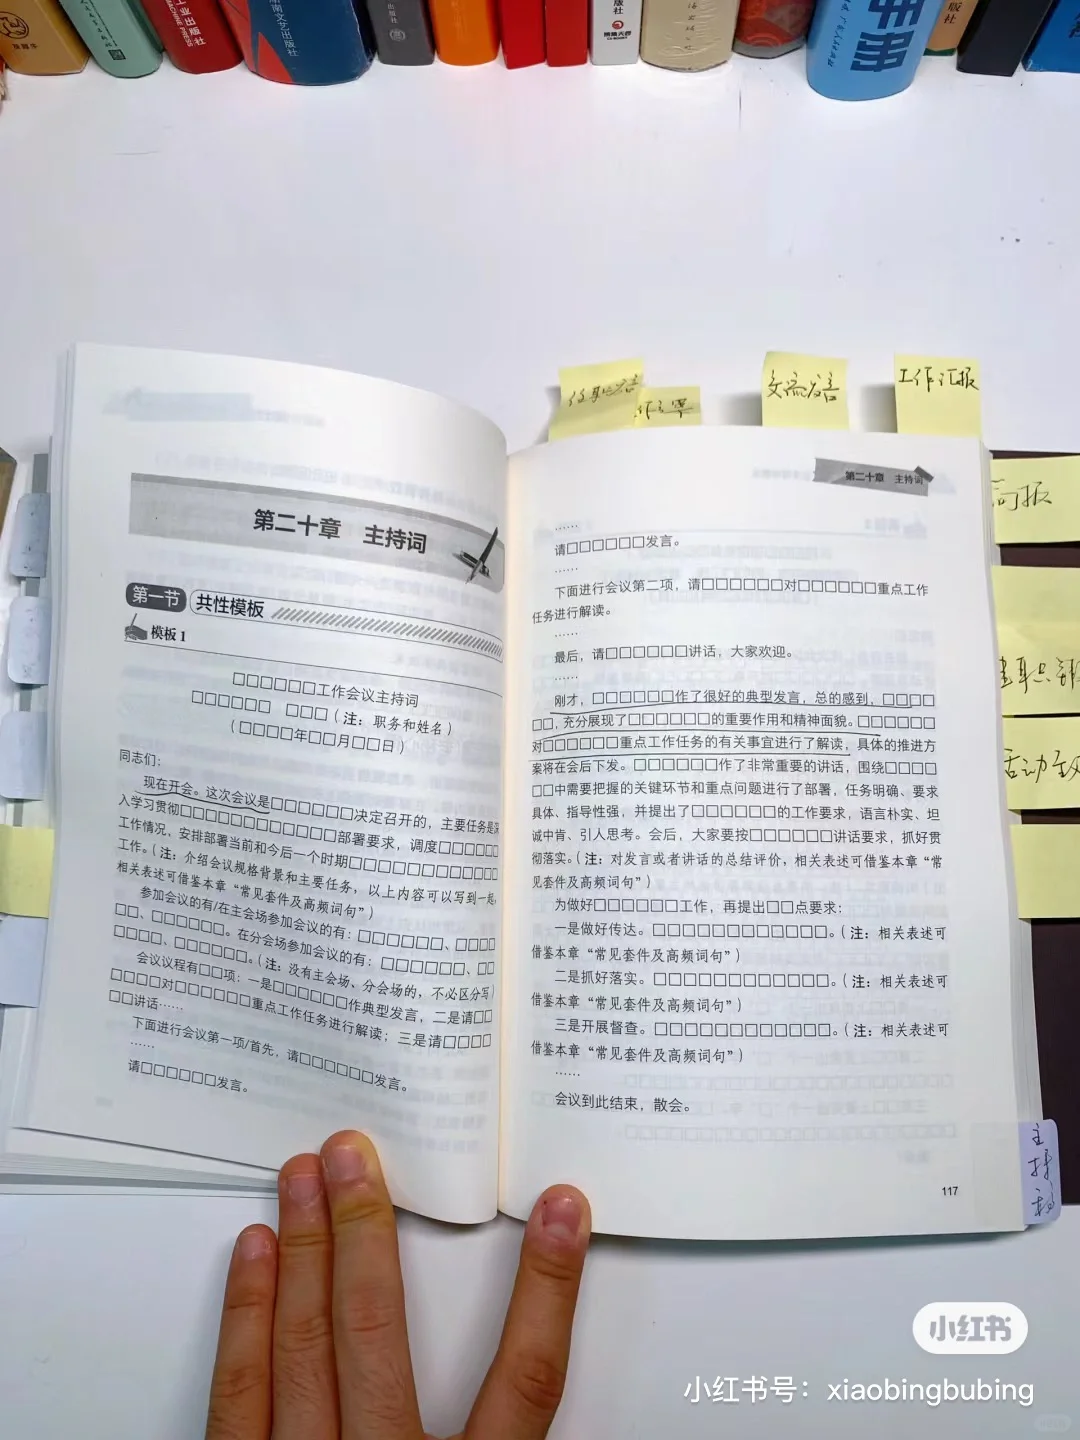 工业出版社
MACHINE PRESS
湖南文艺出版社
出版社
版社
博集天卷
CS-BOOKY
版社
交流发言
工作汇报
第二十章 主持词
第二十章 主持词
第一节 共性模板
模板1
□□□□□□工作会议主持词
□□□□□□ □□□(注：职务和姓名)
(□□□□年□□月□□日)
同志们：
现在开会。这次会议是□□□□□□决定召开的，主要任务是深
入学习贯彻□□□□□□□□□□□□部署要求，调度□□□□□□
工作情况，安排部署当前和今后一个时期□□□□□□□□□□□
工作。(注：介绍会议规格背景和主要任务，以上内容可以写到一起，
相关表述可借鉴本章“常见套件及高频词句”)
参加会议的有/在主会场参加会议的有：□□□□□□、□□□□
□□、□□□□□□。在分会场参加会议的有：□□□□□□、□□
□□□□、□□□□□□。(注：没有主会场、分会场的，不必区分写)
会议议程有□□项：一是□□□□□□作典型发言，二是请□□
□□□□对□□□□□□重点工作任务进行解读；三是请□□□□
□□讲话……
下面进行会议第一项/首先，请□□□□□□发言。
……
请□□□□□□发言。
……
请□□□□□□发言。
……
下面进行会议第二项，请□□□□□□对□□□□□□重点工作
任务进行解读。
……
最后，请□□□□□□讲话，大家欢迎。
……
刚才，□□□□□□作了很好的典型发言，总的感到，□□□□
□□，充分展现了□□□□□□的重要作用和精神面貌。□□□□□□
对□□□□□□重点工作任务的有关事宜进行了解读，具体的推进方
案将在会后下发。□□□□□□作了非常重要的讲话，围绕□□□□
□□中需要把握的关键环节和重点问题进行了部署，任务明确、要求
具体、指导性强，并提出了□□□□□□的工作要求，语言朴实、坦
诚中肯、引人思考。会后，大家要按□□□□□□讲话要求，抓好贯
彻落实。(注：对发言或者讲话的总结评价，相关表述可借鉴本章“常
见套件及高频词句”)
为做好□□□□□□工作，再提出□□点要求：
一是做好传达。□□□□□□□□□□□□。(注：相关表述可
借鉴本章“常见套件及高频词句”)
二是抓好落实。□□□□□□□□□□□□。(注：相关表述可
借鉴本章“常见套件及高频词句”)
三是开展督查。□□□□□□□□□□□□。(注：相关表述可
借鉴本章“常见套件及高频词句”)
……
会议到此结束，散会。
117
简报
活动
主
持
稿
小红书
小红书号：xiaobingbubing